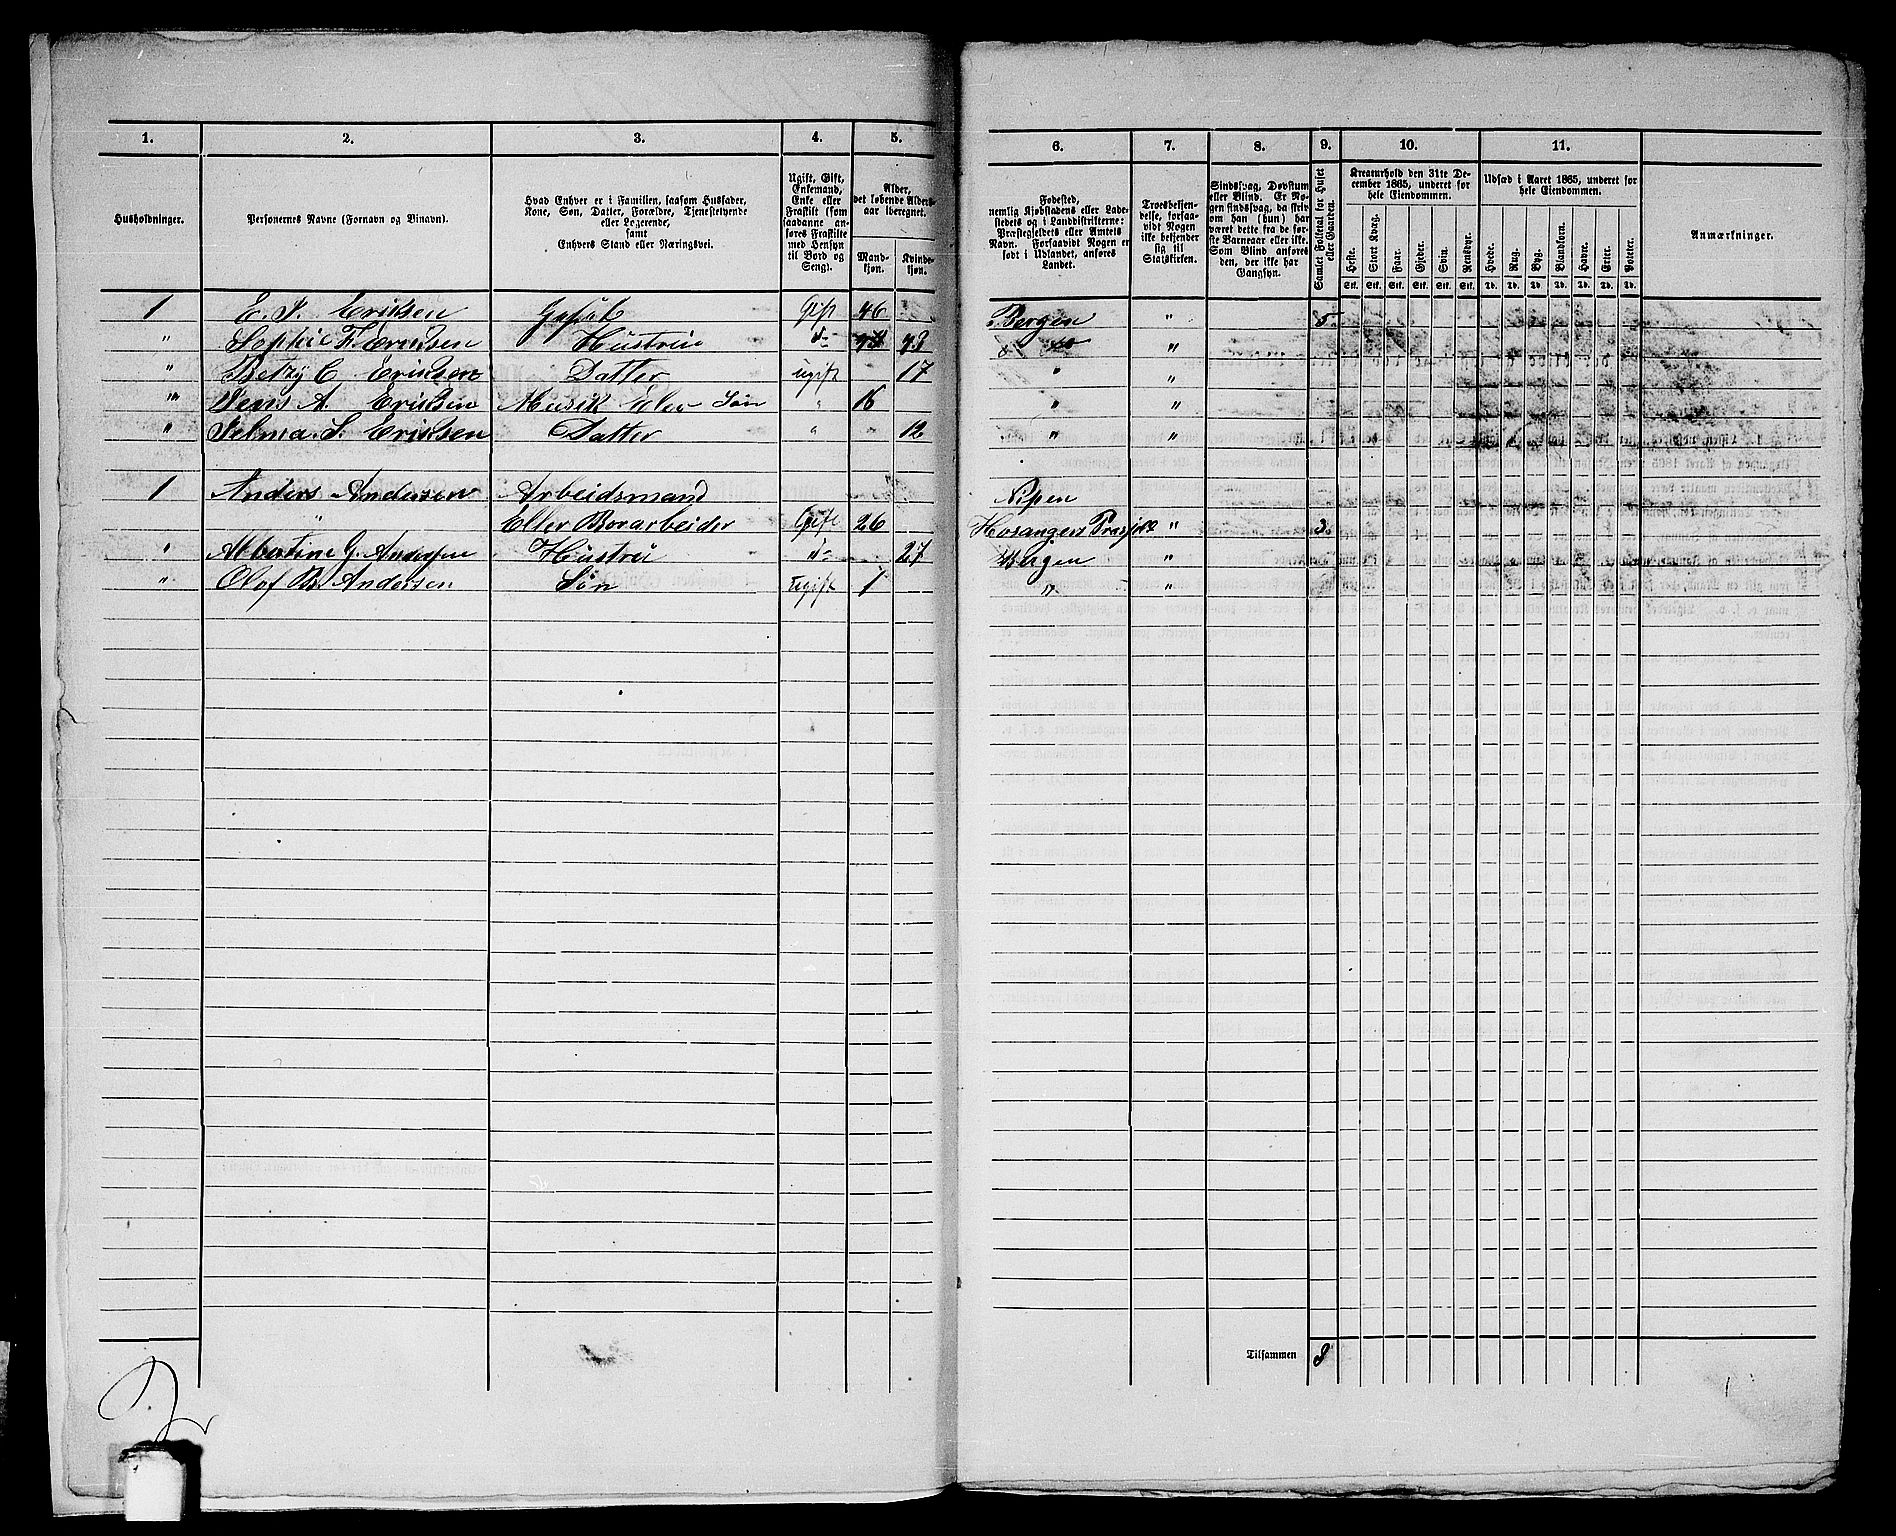 1. 2. 3. 4. 5. 6. 7. 8. 9. 10. 11.
Husholdninger.
Personernes Navne (Fornavn og Binavn).
Hvad Enhver er i Familien, saasom Husfader,
Kone, Søn, Datter, Forældre, Tjenestetyende
eller Logerende,
samt
Enhvers Stand eller Næringsvei.
Ugift, Gift,
Enkemand,
Enke eller
Fraskilt (som
saadanne an-
føres Fraskilte
med Hensyn
til Bord og
Seng).
Alder,
det løbende Alders-
aar iberegnet.
Mand-
kjøn.
Kvinde-
kjøn.
Fødested,
nemlig Kjøbstadens eller Lade-
stedets og i Landdistrikterne:
Præstegjeldets eller Amtets
Navn. Forsaavidt Nogen er
født i Udlandet, anføres
Landet.
Troesbekjen-
delse, forsaa-
vidt Nogen
ikke bekjender
sig til
Statskirken.
Sindssvag, Døvstum
eller Blind. Er No-
gen sindssvag, da skri-
ves om han (hun) har
været dette fra de før-
ste Barneaar eller ikke.
Som Blind anføres
den, der ikke har
Gangsyn.
Samlet Folketal for Huset
eller Gaarden.
Kreaturhold den 31te De-
cember 1865, underet for
hele Eiendommen.
Heste. Stort Kvæg. Faar. Gjeder. Svin. Rensdyr.
Stk. Stk. Stk. Stk. Stk. Stk.
Udsæd i Aaret 1865, underet for
hele Eiendommen.
Hvede. Rug. Byg. Blandkorn. Havre. Erter. Poteter.
Td. Td. Td. Td. Td. Td. Td.
Anmærkninger.
1 Eriksen Gift 46 Bergen " 5
" Sophie Eriksen Hustru 43 "
" Betzy C Eriksen Datter ugift 17 " "
" Jens A. Eriksen Musik Elev Søn " 16 " "
" Selma. S. Eriksen Datter " 12 "
1 Anders Andersen Arbeidsmand
" Eller Borarbeider Gift 26 Hosangers " 3
" Albertine G. Andersen Hustru 27 Bergen "
" Olof Andersen Søn Ugift 1 " "
Tilsammen 8